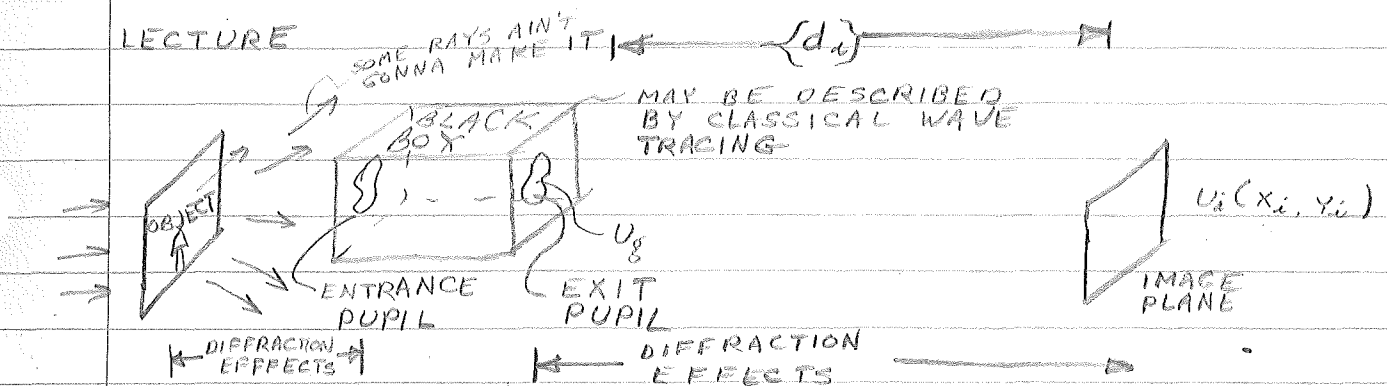 LECTURE
SOME RAYS AIN'T
GONNA MAKE IT
{d_i}
MAY BE DESCRIBED
BY CLASSICAL WAVE
TRACING
BLACK
BOX
OBJECT
U_i(x_i, y_i)
U_g
ENTRANCE
PUPIL
EXIT
PUPIL
IMAGE
PLANE
DIFFRACTION
EFFFECTS
DIFFRACTION
EFFECTS